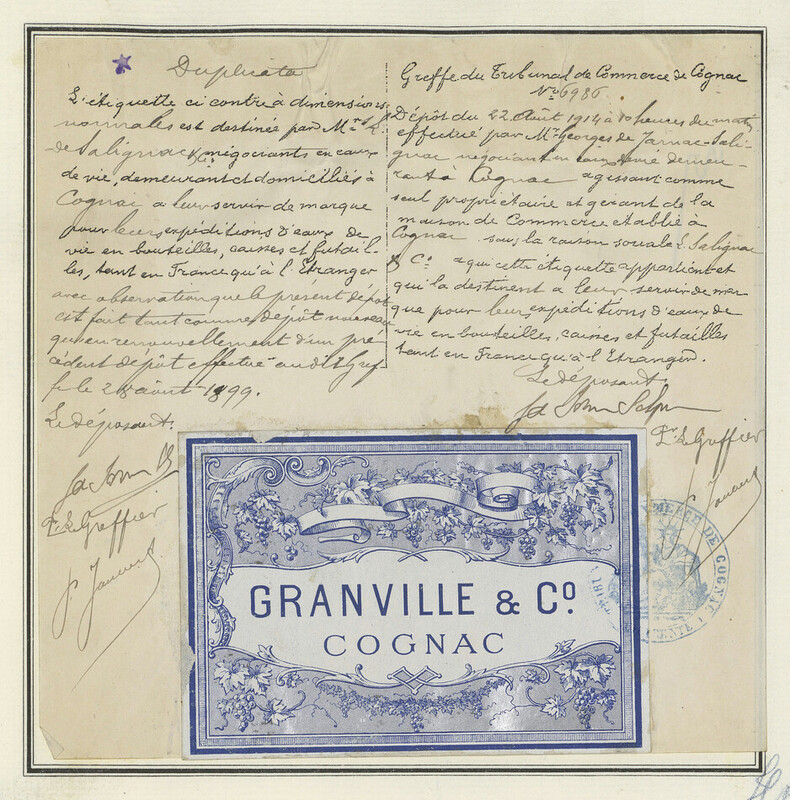 Duplicata
L'étiquette ci contre à dimensions
normales est destinée par Mr. L.
de Salignac négociants en eaux
de vie, demeurant et domiciliés à
Cognac a leur servir de marque
pour leurs expéditions d'eaux de
vie en bouteilles, caisses et futail-
les, tant en France qu'à l'Etranger
avec observation que le présent dépôt
est fait tant comme dépôt nouveau
qu'en renouvellement d'un pré-
cédent dépôt effectué audit Gref-
fe le 28 août 1899.
Le déposant.
Pr. Le Greffier
Greffe du Tribunal de Commerce de Cognac
No 6986
Dépôt du 22 Août 1914 à 10 heures du matin
effectué par Mr. Georges de Jarnac-Sali-
gnac négociant en eaux de vie demeu-
rant à Cognac agissant comme
seul propriétaire et gérant de la
maison de Commerce établie à
Cognac sous la raison sociale L. Salignac
& Co. a qui cette étiquette appartient et
qui la destinent a leur servir de mar-
que pour leurs expéditions d'eaux de
vie en bouteilles, caisses et futailles
tant en France qu'à l'Etranger.
Le déposant.
Pr. Le Greffier
GRANVILLE & Co
COGNAC
COMMERCE DE COGNAC